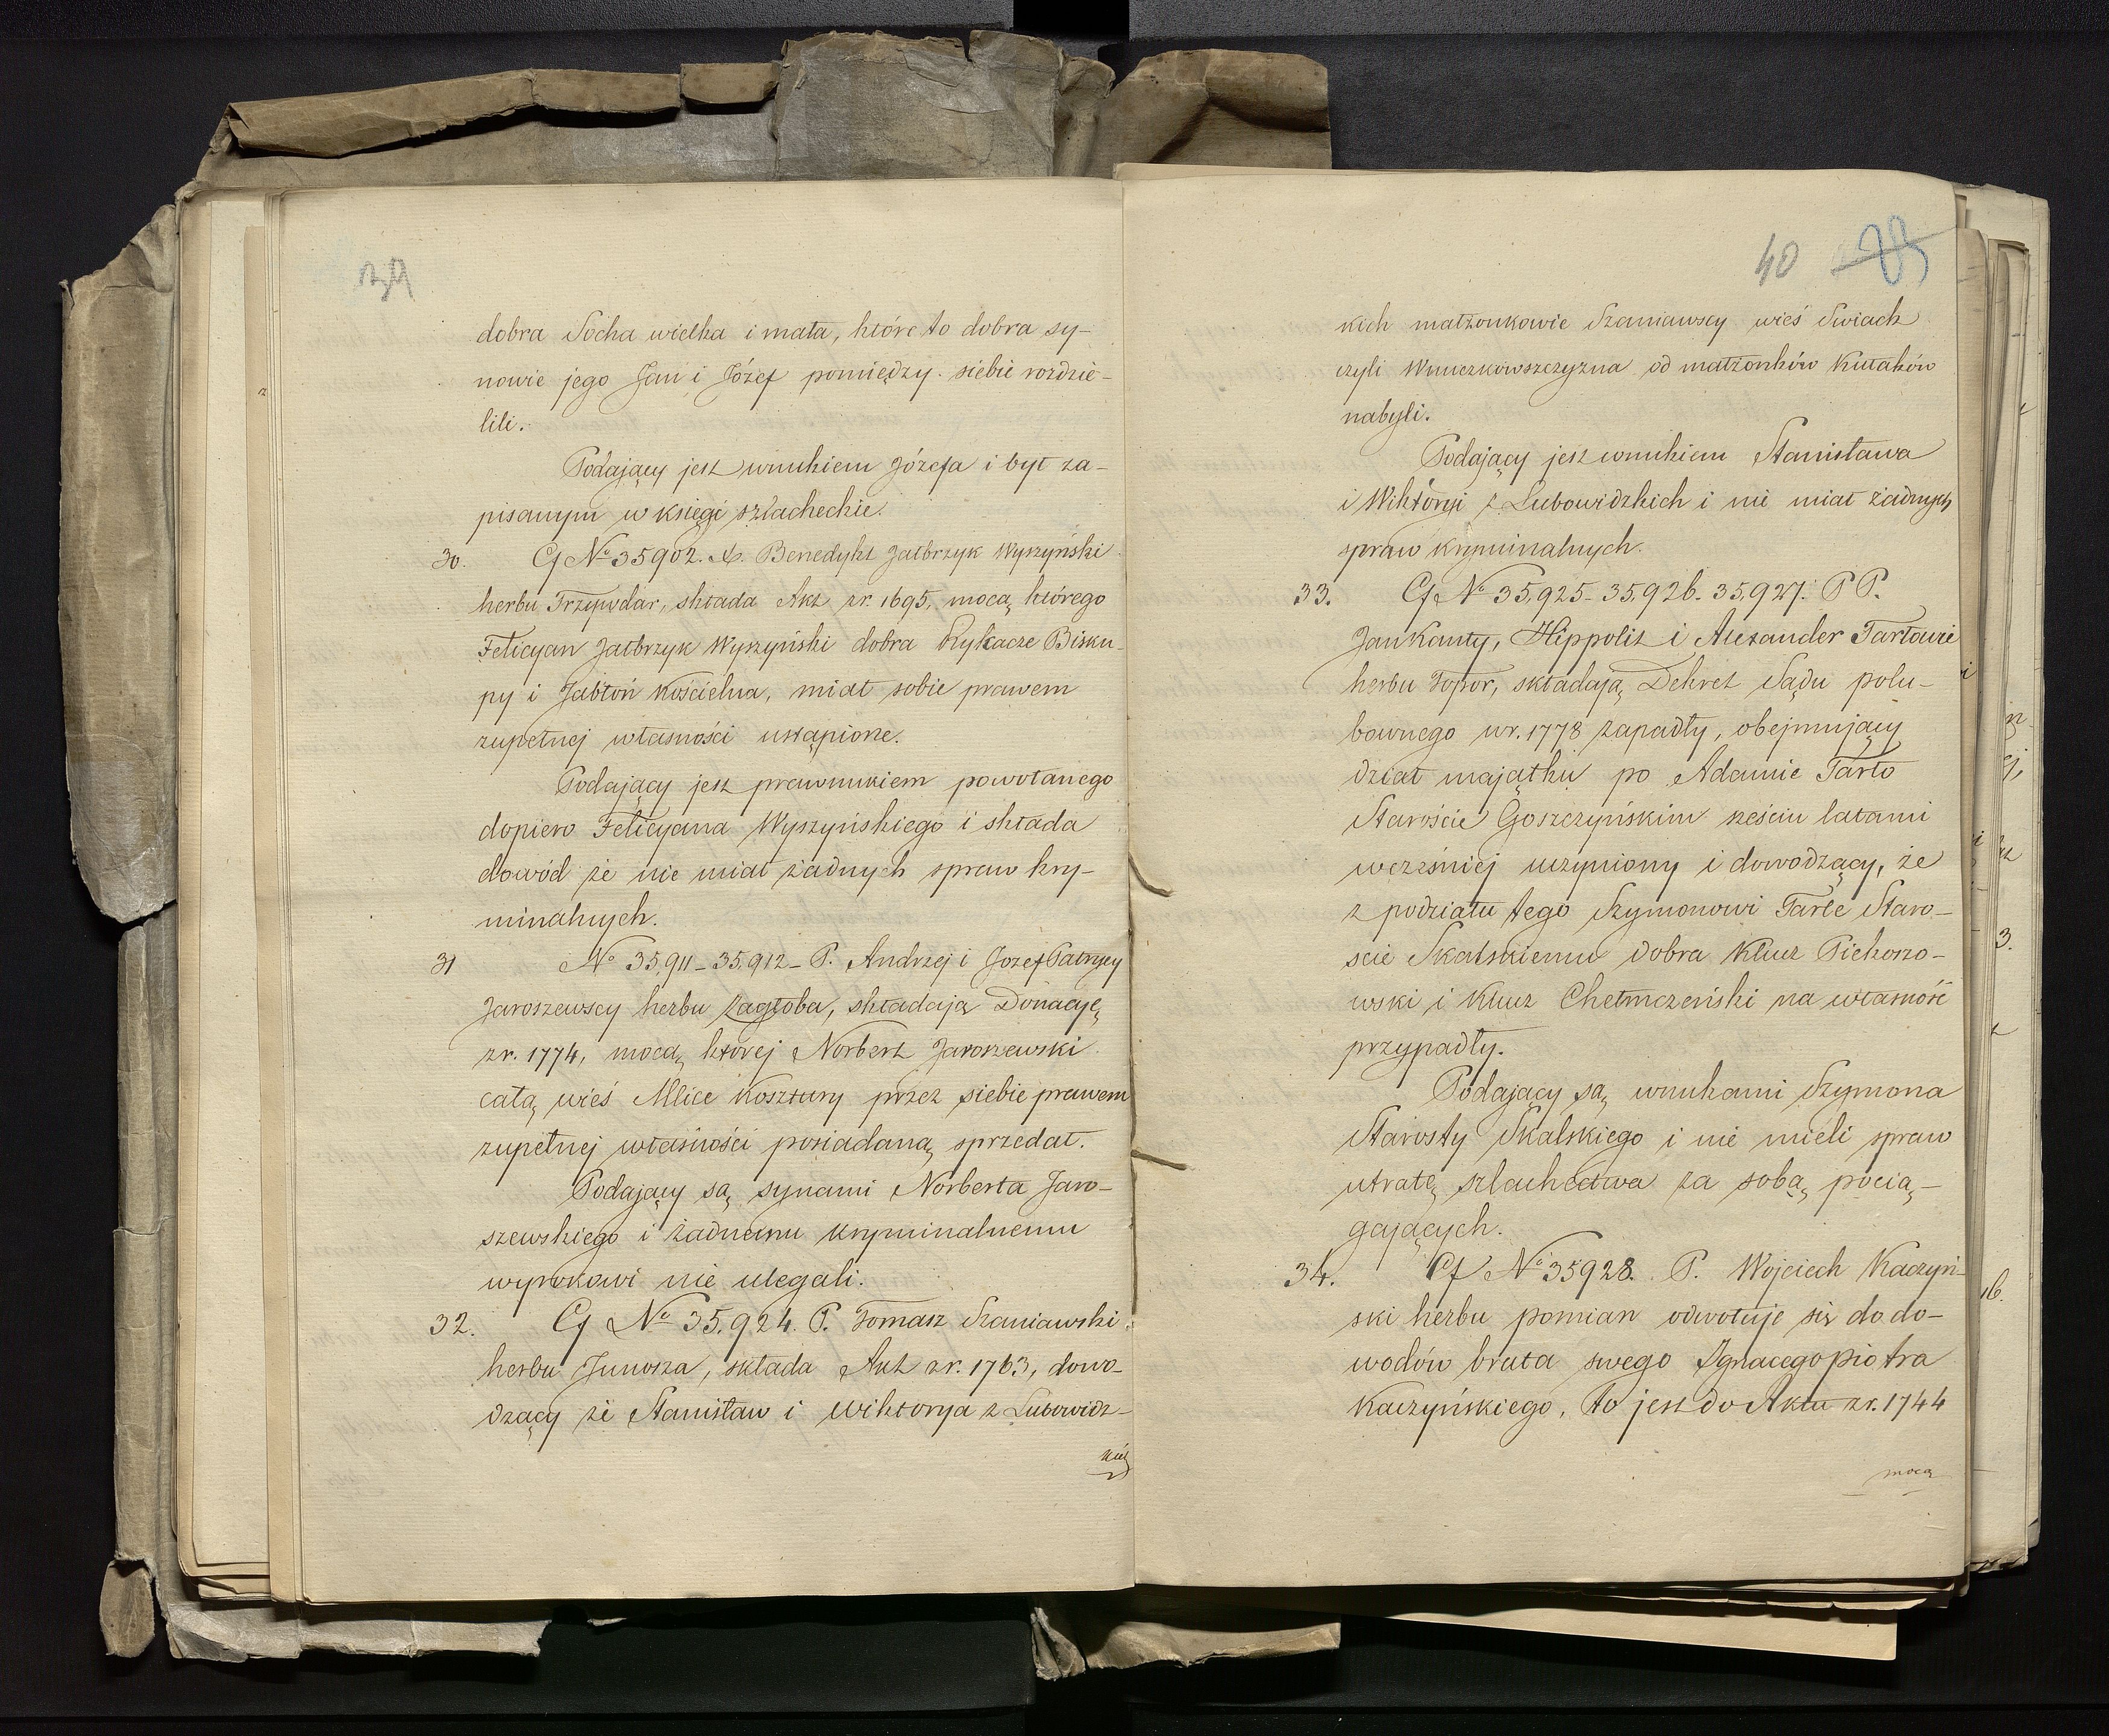 39
dobra Socha wielka i mała, które to dobra sy-
nowie jego Jan i Józef pomiędzy siebie rozdzie-
lili.
Podający jest wnukiem Józefa i był za-
pisanym w księgi szlacheckie.
30. Cf No 35902. X. Benedykt Jałbrzyk Wyszyński
herbu Trzywdar, składa Akt zr. 1695, mocą którego
Felicyan Jałbrzyk Wyszyński dobra Rykacze Bisku-
py i Jabłoń Kościelna, miał sobie prawem
zupełnej własności ustąpione.
Podający jest prawnukiem powołanego
dopiero Felicyana Wyszyńskiego i składa
dowód że nie miał żadnych spraw kry-
minalnych.
31 No 35,911-35,912- P. Andrzej i Jozef Patrycy
Jaroszewscy herbu Zagłoba, składają Donacyę
zr. 1774, mocą ktorej Norbert Jaroszewski
całą wieś Mlice Kosztury przez siebie prawem
zupełnej własności posiadaną sprzedał.
Podający są synami Norberta Jaro-
szewskiego i żadnemu kryminalnemu
wyrokowi nie ulegali.
32. Cf No 35.924. P. Tomasz Szaniawski
herbu Junosza, składa Akt zr. 1763, dowo-
dzący że Stanisław i Wiktorya z Lubowidz-
kich
40
kich małżonkowie Szaniawscy wieś Swiack
czyli Wnuczkowszczyzna od małżonków Kułaków
nabyli.
Podający jest wnukiem Stanisława
i Wiktoryi z Lubowidzkich i nie miał żadnych
spraw kryminalnych.
33. Cf No 35,925-35,926. 35,927. PP.
Jan Kanty, Hippolit i Alexander Tarłowie
herbu Topór, składają Dekret Sądu polu-
bownego wr. 1778 zapadły, obejmujący
dział majątku po Adamie Tarło
Staroście Goszczyńskim sześciu latami
wcześniej uczyniony i dowodzący, że
z podziału tego Szymonowi Tarle Staro-
scie Skalskiemu dobra Klucz Piekoszo-
wski i Klucz Chełmczeński na własność
przypadły.
Podający są wnukami Szymona
Starosty Skalskiego i nie mieli spraw
utratę szlachectwa za sobą pocią-
gających.
34. Cf No 35928. P. Wojciech Kaczyń-
ski herbu pomian odwołuje się do do-
wodów brata swego Ignacego piotra
Kaczyńskiego, to jest do Aktu zr. 1744
mocą